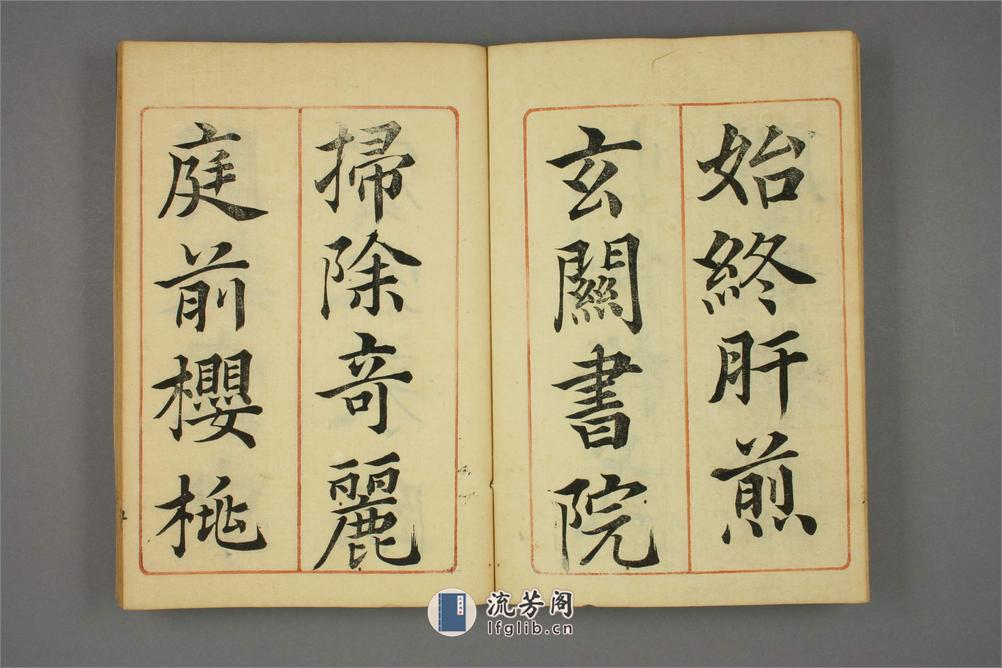 始終肝煎
玄關書院
掃除奇麗
庭前櫻桃
流芳阁
lfglib.cn